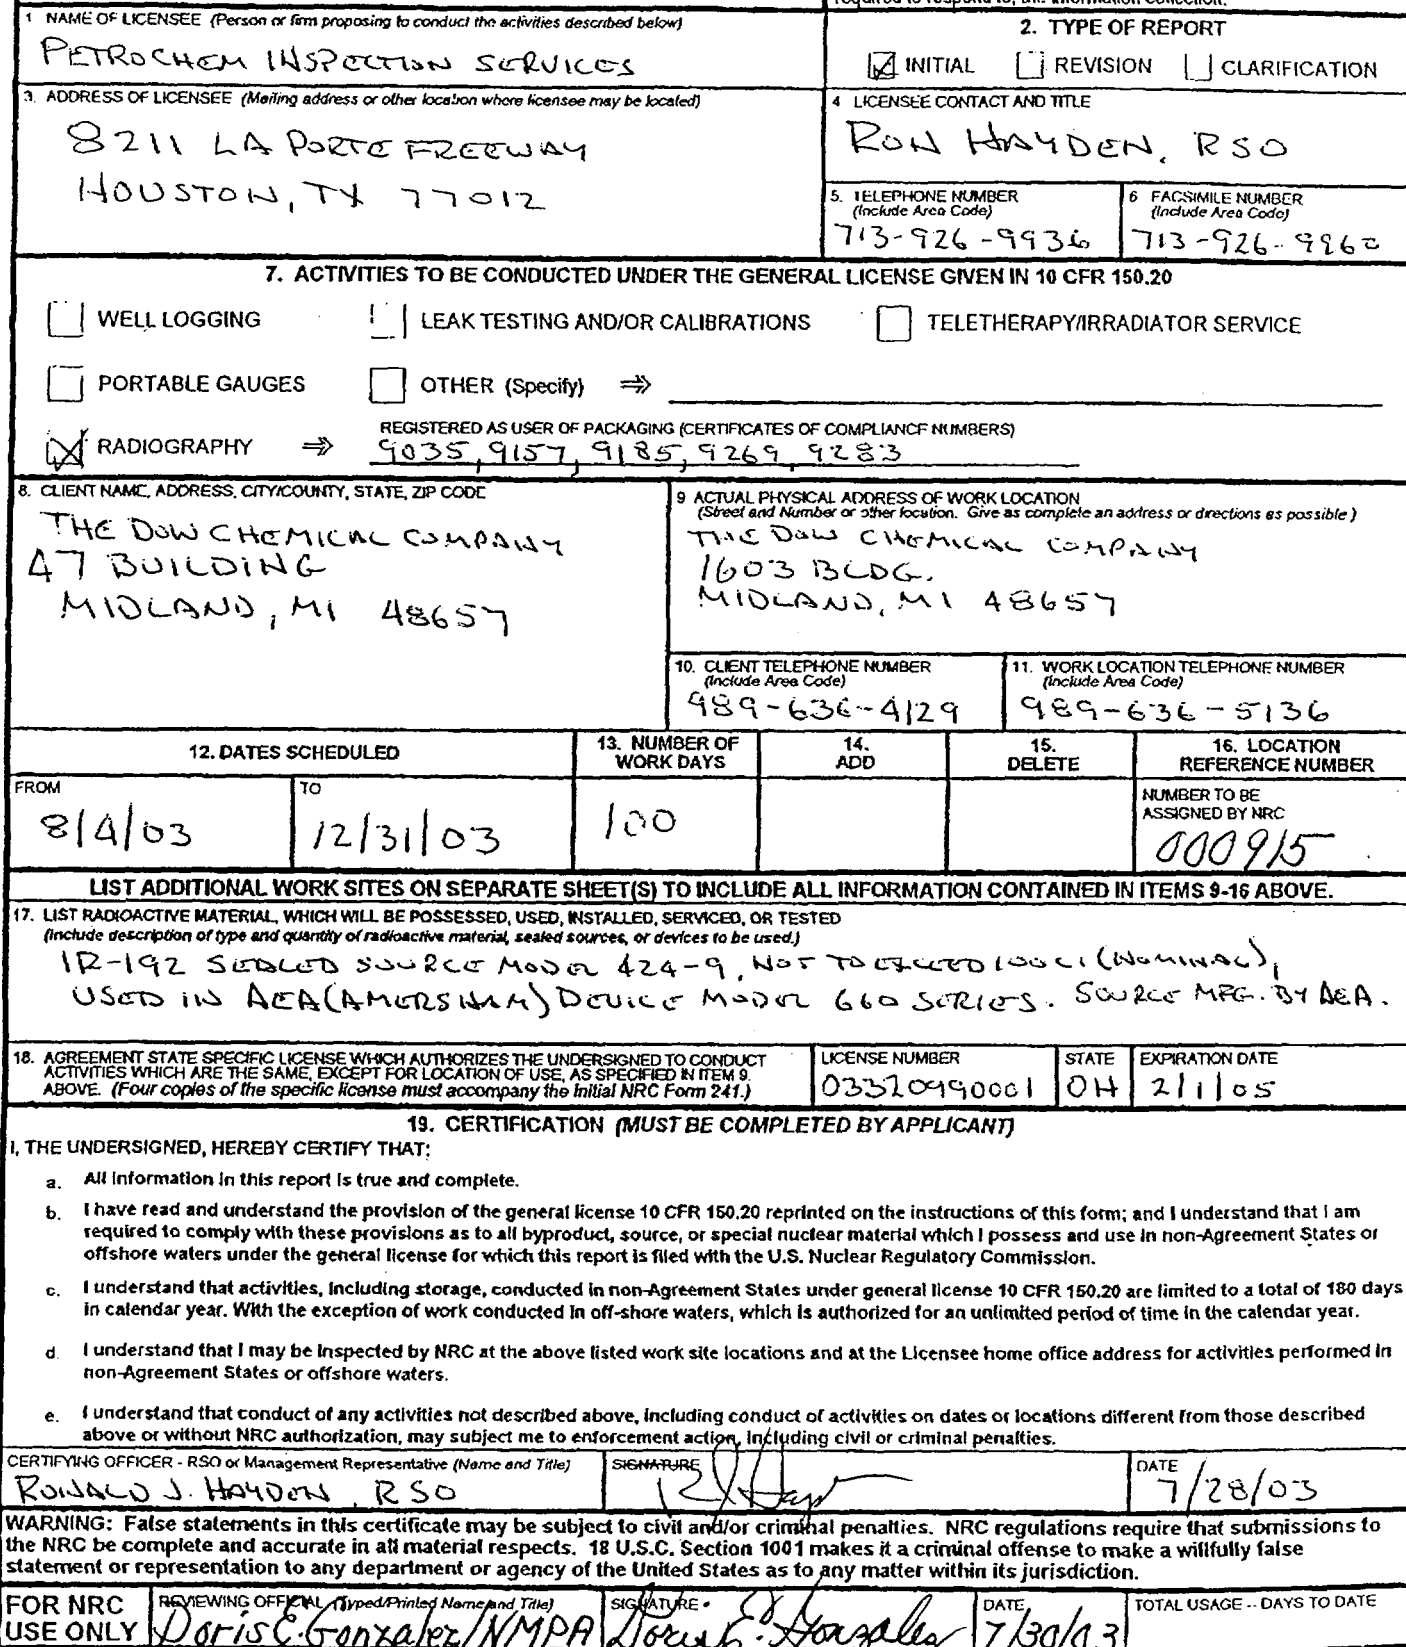 1 NAME OF LICENSEE (Person or firm proposing to conduct the activities described below)
PETROCHEM INSPECTION SERVICES
2. TYPE OF REPORT
INITIAL REVISION CLARIFICATION
3. ADDRESS OF LICENSEE (Mailing address or other location where licensee may be located)
8211 LA PORTE FREEWAY
HOUSTON, TX 77012
4 LICENSEE CONTACT AND TITLE
RON HAYDEN, RSO
5. TELEPHONE NUMBER
(Include Area Code)
713-926-9936
6 FACSIMILE NUMBER
(Include Area Code)
713-926-9960
7. ACTIVITIES TO BE CONDUCTED UNDER THE GENERAL LICENSE GIVEN IN 10 CFR 150.20
WELL LOGGING LEAK TESTING AND/OR CALIBRATIONS TELETHERAPY/IRRADIATOR SERVICE
PORTABLE GAUGES OTHER (Specify) ⇒
RADIOGRAPHY ⇒ REGISTERED AS USER OF PACKAGING (CERTIFICATES OF COMPLIANCE NUMBERS)
9035, 9157, 9185, 9269, 9283
8. CLIENT NAME, ADDRESS, CITY/COUNTY, STATE, ZIP CODE
THE DOW CHEMICAL COMPANY
47 BUILDING
MIDLAND, MI 48657
9 ACTUAL PHYSICAL ADDRESS OF WORK LOCATION
(Street and Number or other location. Give as complete an address or directions as possible)
THE DOW CHEMICAL COMPANY
1603 BLDG.
MIDLAND, MI 48657
10. CLIENT TELEPHONE NUMBER
(Include Area Code)
989-636-4129
11. WORK LOCATION TELEPHONE NUMBER
(Include Area Code)
989-636-5136
12. DATES SCHEDULED
13. NUMBER OF
WORK DAYS
14.
ADD
15.
DELETE
16. LOCATION
REFERENCE NUMBER
FROM
8/4/03
TO
12/31/03
100
NUMBER TO BE
ASSIGNED BY NRC
000915
LIST ADDITIONAL WORK SITES ON SEPARATE SHEET(S) TO INCLUDE ALL INFORMATION CONTAINED IN ITEMS 9-16 ABOVE.
17. LIST RADIOACTIVE MATERIAL, WHICH WILL BE POSSESSED, USED, INSTALLED, SERVICED, OR TESTED
(Include description of type and quantity of radioactive material, sealed sources, or devices to be used.)
IR-192 SEALED SOURCE MODEL 424-9, NOT TO EXCEED 100 CI (NOMINAL),
USED IN AEA (AMERSHAM) DEVICE MODEL 660 SERIES. SOURCE MFG. BY AEA.
18. AGREEMENT STATE SPECIFIC LICENSE WHICH AUTHORIZES THE UNDERSIGNED TO CONDUCT
ACTIVITIES WHICH ARE THE SAME, EXCEPT FOR LOCATION OF USE, AS SPECIFIED IN ITEM 9
ABOVE. (Four copies of the specific license must accompany the Initial NRC Form 241.)
LICENSE NUMBER
03320990001
STATE
OH
EXPIRATION DATE
2/1/05
19. CERTIFICATION (MUST BE COMPLETED BY APPLICANT)
I, THE UNDERSIGNED, HEREBY CERTIFY THAT:
a. All information in this report is true and complete.
b. I have read and understand the provision of the general license 10 CFR 150.20 reprinted on the instructions of this form; and I understand that I am
required to comply with these provisions as to all byproduct, source, or special nuclear material which I possess and use in non-Agreement States or
offshore waters under the general license for which this report is filed with the U.S. Nuclear Regulatory Commission.
c. I understand that activities, including storage, conducted in non-Agreement States under general license 10 CFR 150.20 are limited to a total of 180 days
in calendar year. With the exception of work conducted in off-shore waters, which is authorized for an unlimited period of time in the calendar year.
d. I understand that I may be inspected by NRC at the above listed work site locations and at the Licensee home office address for activities performed in
non-Agreement States or offshore waters.
e. I understand that conduct of any activities not described above, including conduct of activities on dates or locations different from those described
above or without NRC authorization, may subject me to enforcement action, including civil or criminal penalties.
CERTIFYING OFFICER - RSO or Management Representative (Name and Title)
RONALD J. HAYDEN, RSO
SIGNATURE
DATE
7/28/03
WARNING: False statements in this certificate may be subject to civil and/or criminal penalties. NRC regulations require that submissions to
the NRC be complete and accurate in all material respects. 18 U.S.C. Section 1001 makes it a criminal offense to make a willfully false
statement or representation to any department or agency of the United States as to any matter within its jurisdiction.
FOR NRC
USE ONLY
REVIEWING OFFICIAL (Typed/Printed Name and Title)
Doris E. Gonzalez/NMPA
SIGNATURE
Doris E. Gonzales
DATE
7/30/03
TOTAL USAGE -- DAYS TO DATE